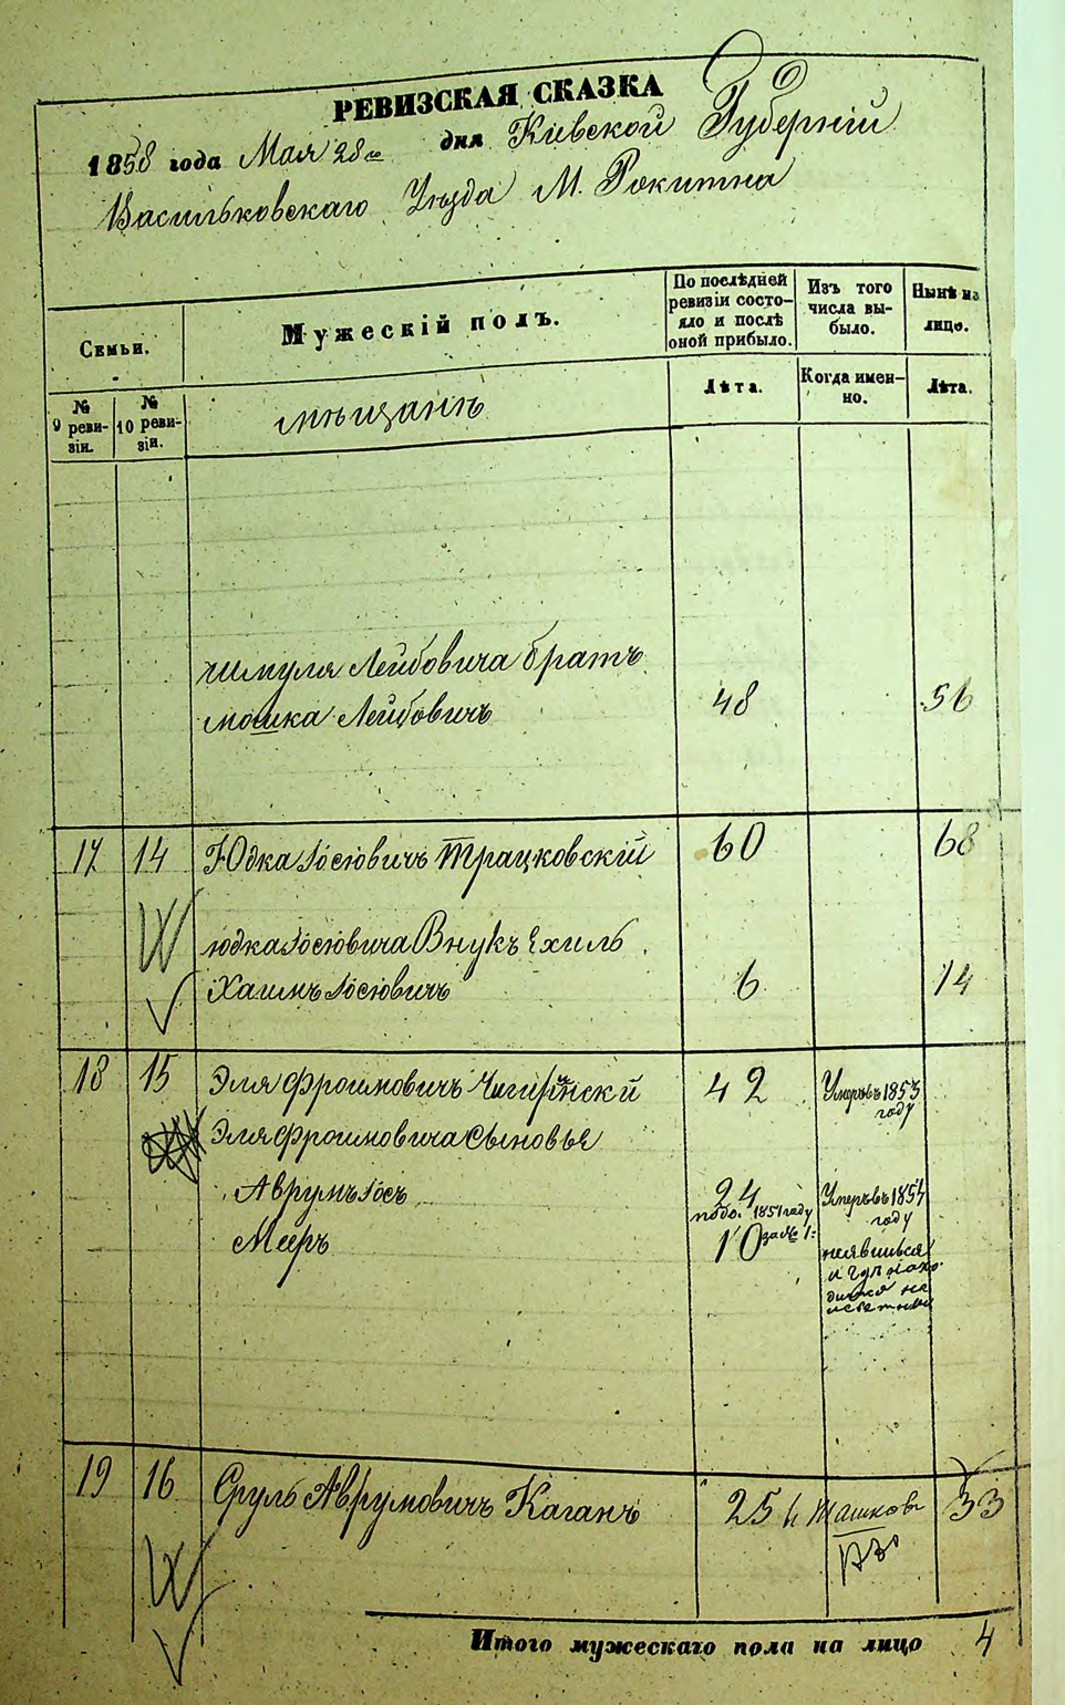 РЕВИЗСКАЯ СКАЗКА
1858 года Мая 28го дня Кіевской Губерніи
Васильковскаго Уѣзда М. Рокитна
Семьи.
Мужескій полъ.
По послѣдней ревизіи состояло и послѣ оной прибыло.
Изъ того числа выбыло.
Нынѣ на лицо.
№ 9 ревизіи.
№ 10 ревизіи.
мѣщанѣ
Лѣта.
Когда именно.
Лѣта.
Шмуля Лейбовича братъ
Мошка Лейбовичъ 48 56
17 14 Юдка Іосіовичъ Трацковскій 60 68
Юдка Іосіовича Внукъ Ехиль
Хаимъ Іосіовичъ 6 14
18 15 Эля Фроимовичъ Чигиринскій 42 Умеръ въ 1853 году
Эля Фроимовича Сыновье
Аврумъ Іосъ 24 Умеръ въ 1854 году
1851 году за №
Мееръ 10
19 16 Сруль Аврумовичъ Каганъ 25 33
Итого мужескаго пола на лицо 4